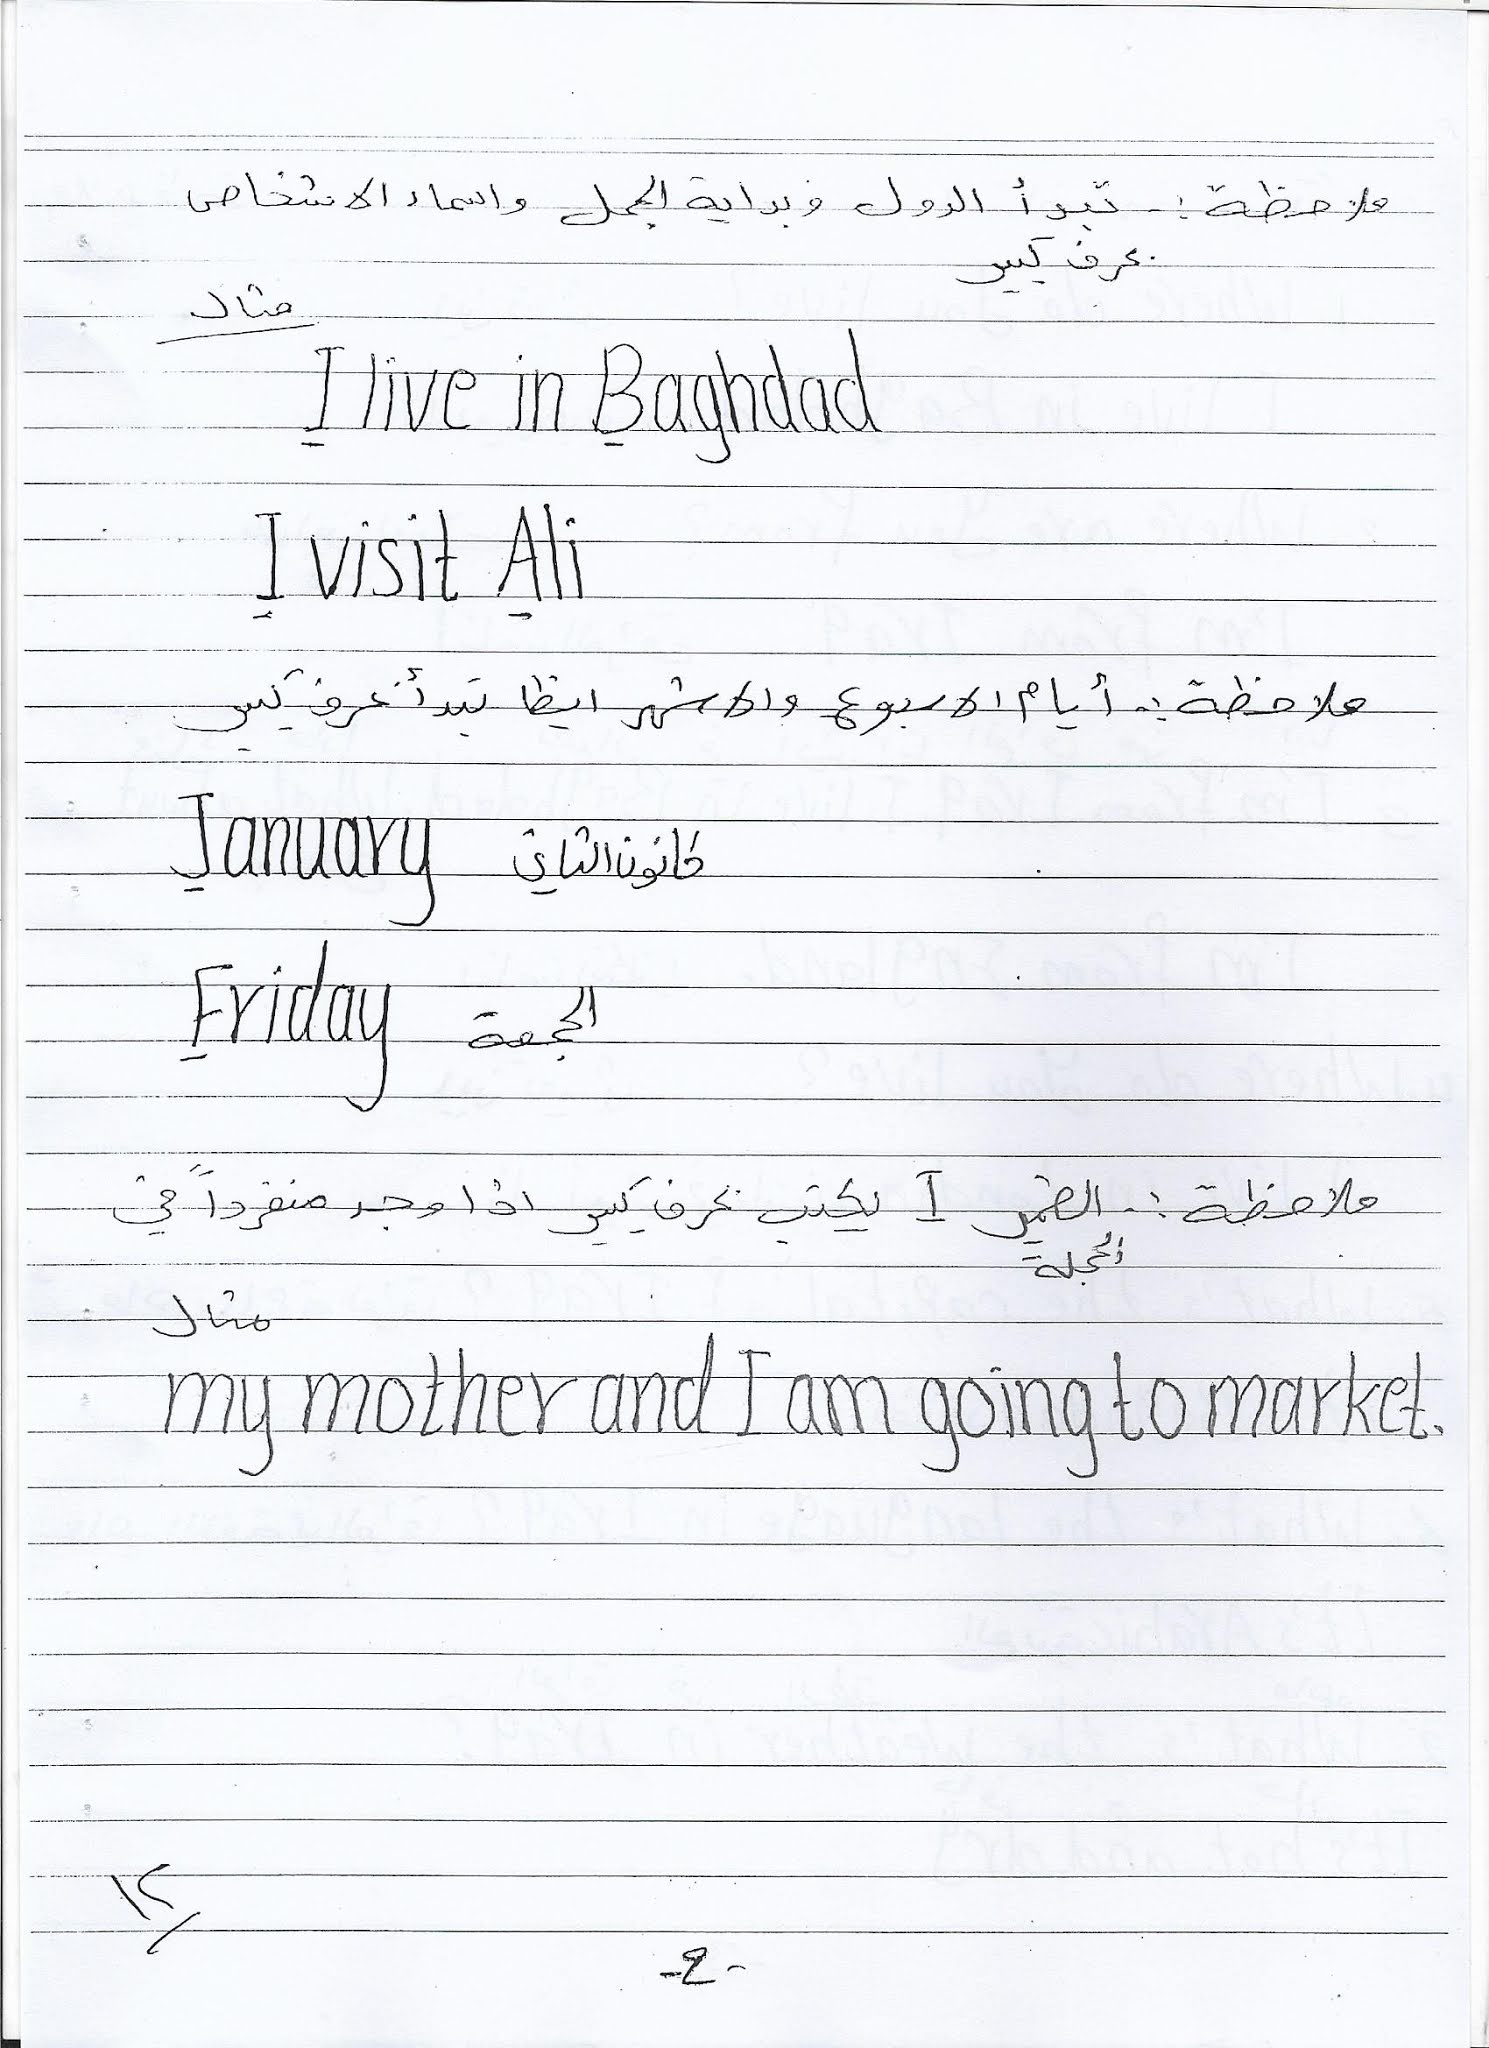 ملاحظة :- تبدأ الدول وبداية الجمل واسماء الاشخاص
بحرف كبير
مثال
I live in Baghdad
I visit Ali
ملاحظة :- أيام الاسبوع والاشهر ايظا تبدأ بحرف كبير
January كانون الثاني
Friday الجمعة
ملاحظة :- الضمير I يكتب بحرف كبير اذا وجد منفرداً في
الجملة
مثال
my mother and I am going to market.
-2-